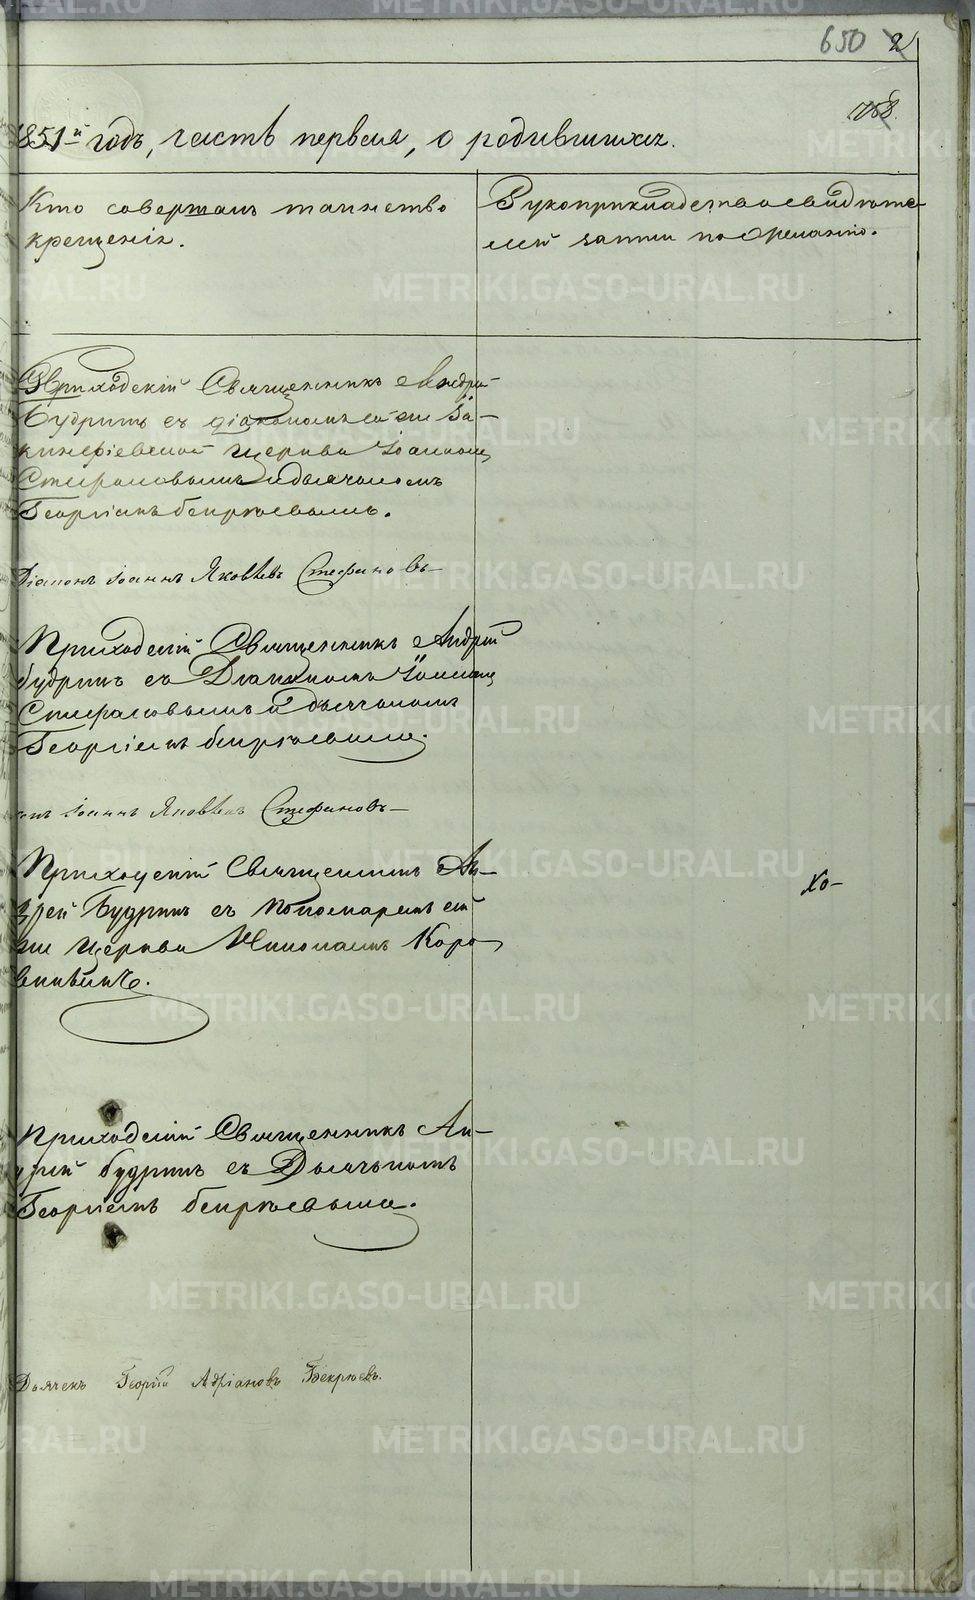 650 2
758.
1851й годъ, часть первая, о родившихся.
Кто совершалъ таинство
крещенія.
Рукоприкладство свидѣте-
лей записи по желанію.
Приходскій Священникъ Андрей
Будринъ съ діакономъ сей же Іа-
кинфіевской церкви Іоанномъ
Стефановымъ и дьячкомъ
Георгіемъ Бекрѣевымъ.
Діаконъ Іоаннъ Яковлевъ Стефановъ
Приходскій Священникъ Андрей
Будринъ съ Діакономъ Іоанномъ
Стефановымъ и дьячкомъ
Георгіемъ Бекрѣевымъ.
Іоаннъ Яковлевъ Стефановъ
Приходскій Священникъ Ан-
дрей Будринъ съ пономаремъ сей
же церкви Николаемъ Коро-
Хо-
Приходскій Священникъ Ан-
дрей Будринъ съ Дьячкомъ
Георгіемъ Бекрѣевымъ.
Дьячекъ Георгій Адріановъ Бекрѣевъ.
METRIKI.GASO-URAL.RU